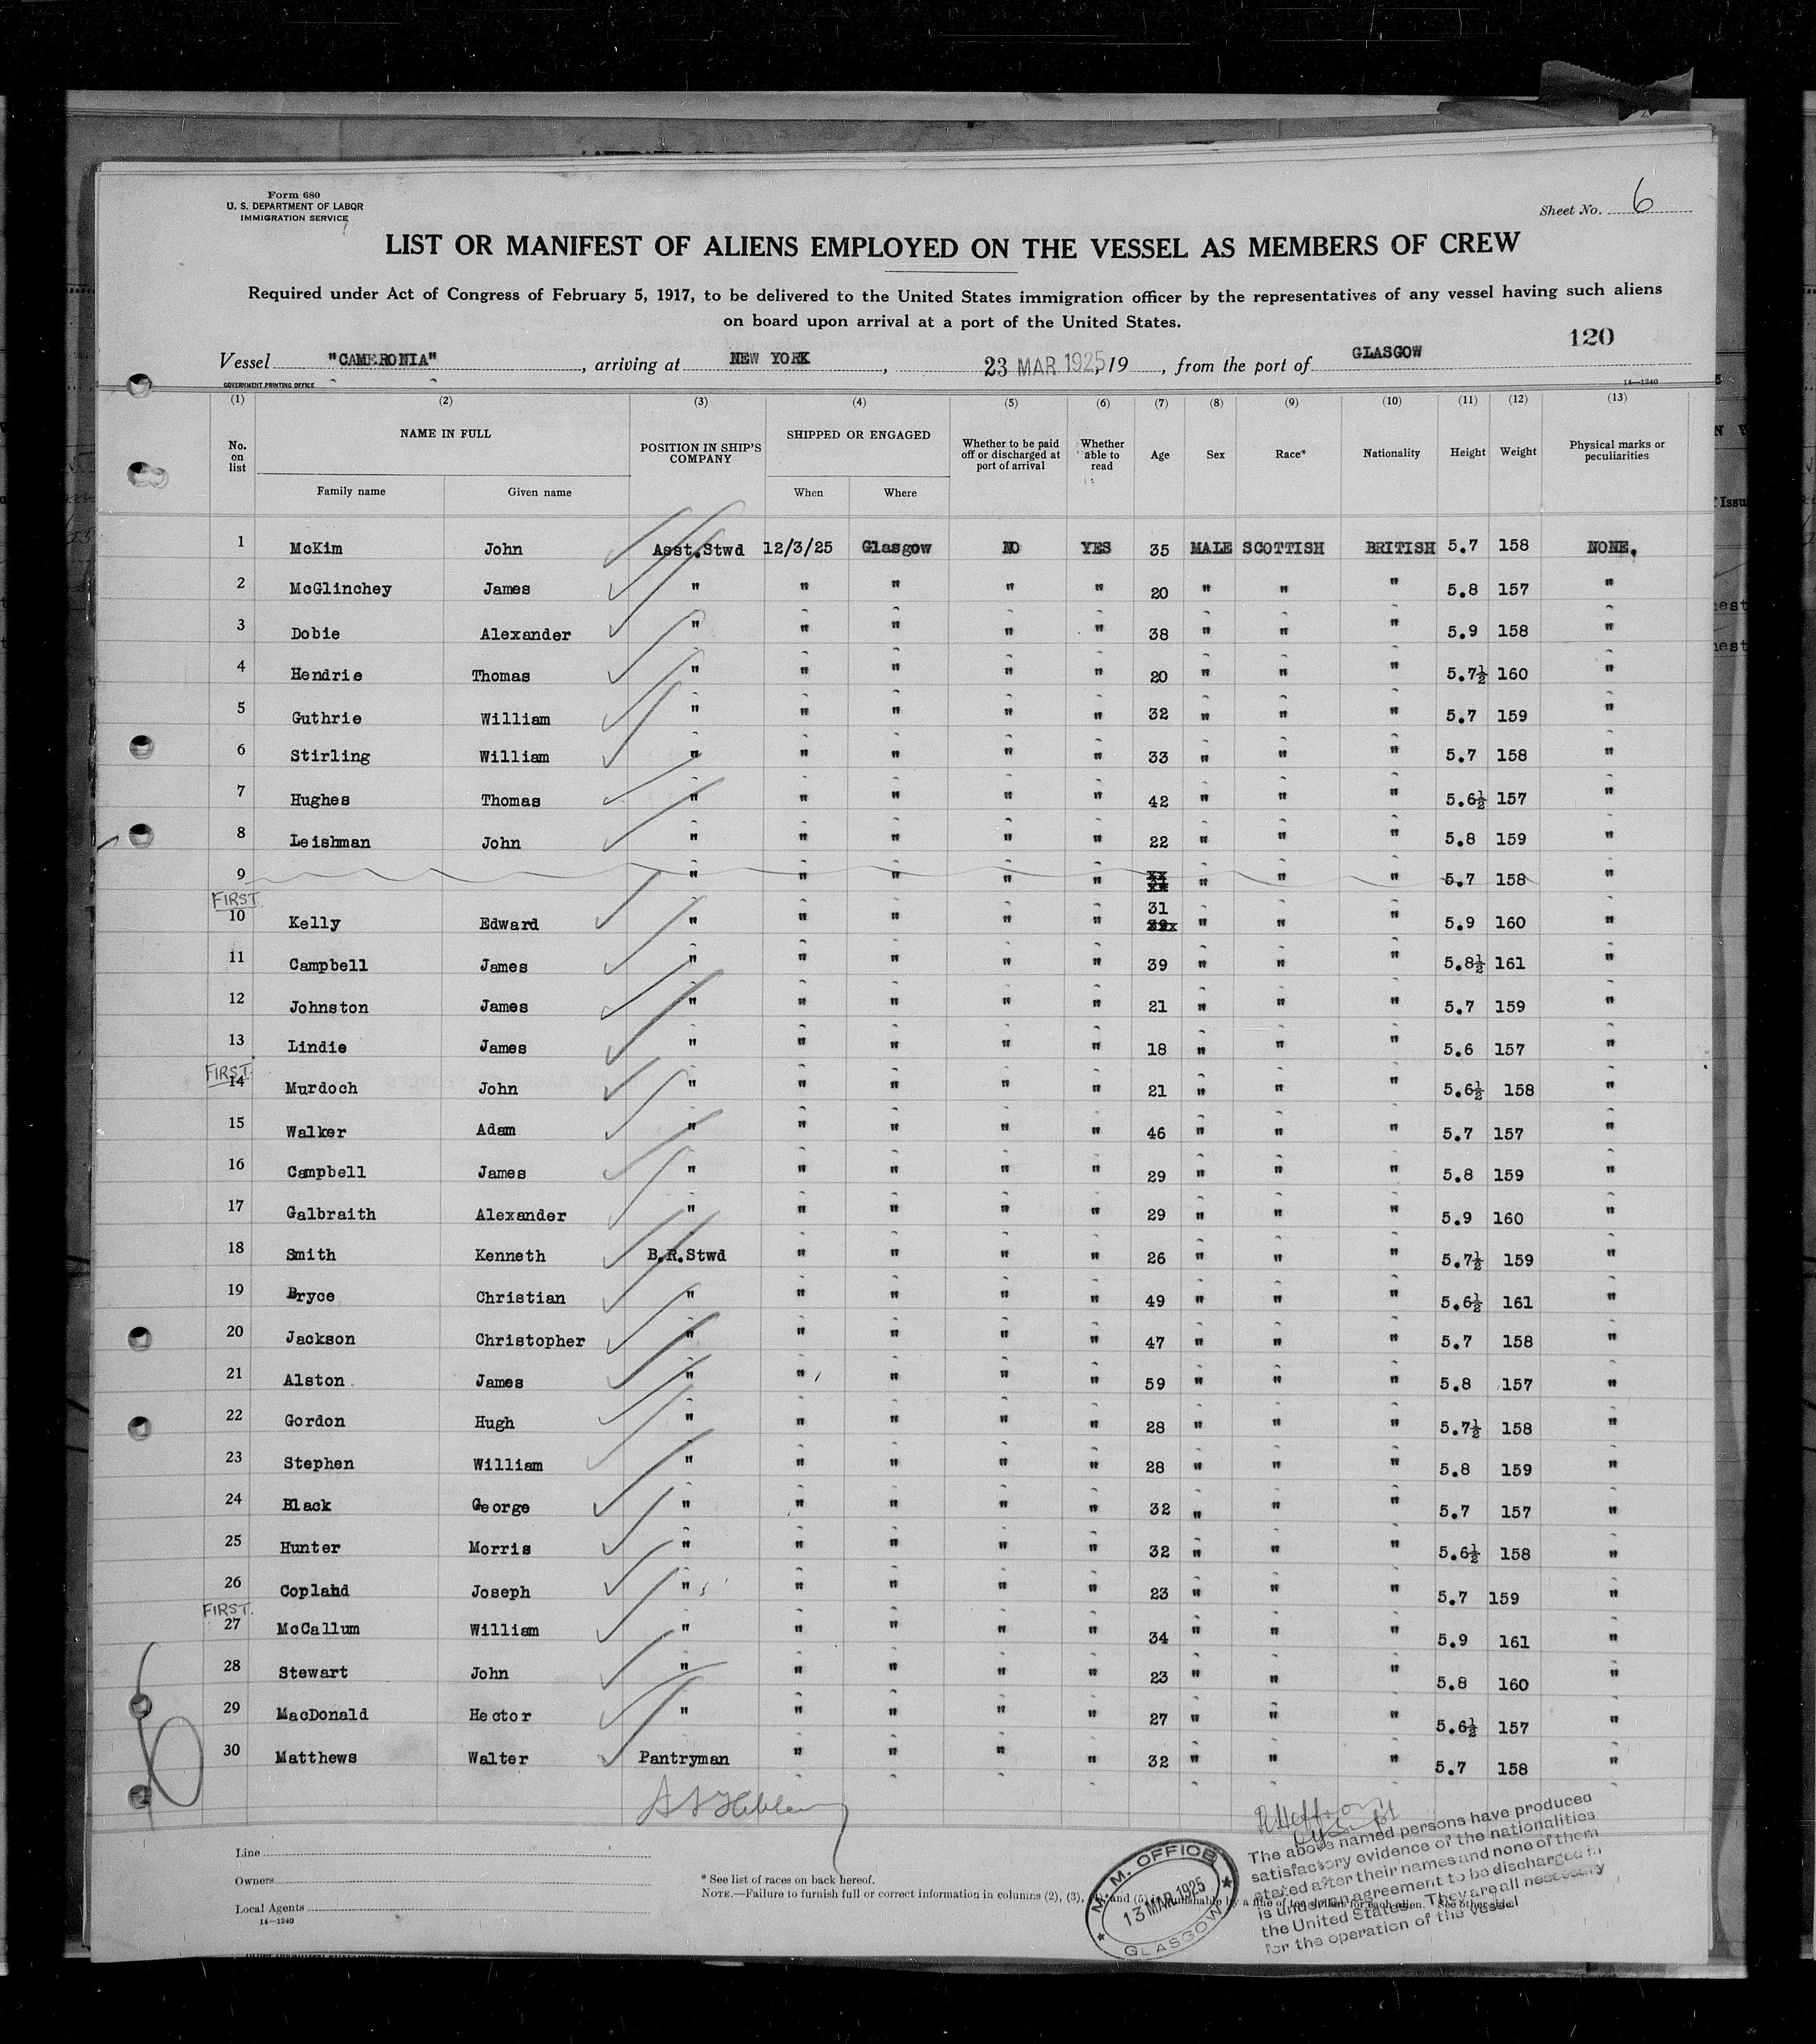 Form 680
U. S. DEPARTMENT OF LABOR
IMMIGRATION SERVICE
Sheet No. 6
LIST OR MANIFEST OF ALIENS EMPLOYED ON THE VESSEL AS MEMBERS OF CREW
Required under Act of Congress of February 5, 1917, to be delivered to the United States immigration officer by the representatives of any vessel having such aliens
on board upon arrival at a port of the United States.
120
Vessel "CAMERONIA", arriving at NEW YORK, 23 MAR 1925, 19 , from the port of GLASGOW
GOVERNMENT PRINTING OFFICE 14—1240
(1) (2) (3) (4) (5) (6) (7) (8) (9) (10) (11) (12) (13)
No. on list NAME IN FULL POSITION IN SHIP'S COMPANY SHIPPED OR ENGAGED Whether to be paid off or discharged at port of arrival Whether able to read Age Sex Race* Nationality Height Weight Physical marks or peculiarities
Family name Given name When Where
1 McKim John Asst.Stwd 12/3/25 Glasgow NO YES 35 MALE SCOTTISH BRITISH 5.7 158 NONE.
2 McGlinchey James " " " " " 20 " " " 5.8 157 "
3 Dobie Alexander " " " " " 38 " " " 5.9 158 "
4 Hendrie Thomas " " " " " 20 " " " 5.7½ 160 "
5 Guthrie William " " " " " 32 " " " 5.7 159 "
6 Stirling William " " " " " 33 " " " 5.7 158 "
7 Hughes Thomas " " " " " 42 " " " 5.6½ 157 "
8 Leishman John " " " " " 22 " " " 5.8 159 "
9 " " " " " " " " 5.7 158 "
FIRST.
10 Kelly Edward " " " " " 31 " " " 5.9 160 "
11 Campbell James " " " " " 39 " " " 5.8½ 161 "
12 Johnston James " " " " " 21 " " " 5.7 159 "
13 Lindie James " " " " " 18 " " " 5.6 157 "
FIRST.
14 Murdoch John " " " " " 21 " " " 5.6½ 158 "
15 Walker Adam " " " " " 46 " " " 5.7 157 "
16 Campbell James " " " " " 29 " " " 5.8 159 "
17 Galbraith Alexander " " " " " 29 " " " 5.9 160 "
18 Smith Kenneth B.R.Stwd " " " " 26 " " " 5.7½ 159 "
19 Bryce Christian " " " " " 49 " " " 5.6½ 161 "
20 Jackson Christopher " " " " " 47 " " " 5.7 158 "
21 Alston James " " " " " 59 " " " 5.8 157 "
22 Gordon Hugh " " " " " 28 " " " 5.7½ 158 "
23 Stephen William " " " " " 28 " " " 5.8 159 "
24 Black George " " " " " 32 " " " 5.7 157 "
25 Hunter Morris " " " " " 32 " " " 5.6½ 158 "
26 Copland Joseph " " " " " 23 " " " 5.7 159 "
FIRST.
27 McCallum William " " " " " 34 " " " 5.9 161 "
28 Stewart John " " " " " 23 " " " 5.8 160 "
29 MacDonald Hector " " " " " 27 " " " 5.6½ 157 "
30 Matthews Walter Pantryman " " " " 32 " " " 5.7 158 "
The above named persons have produced
satisfactory evidence of the nationalities
stated after their names and none of them
is under an agreement to be discharged in
the United States. They are all necessary
for the operation of the vessel
M. M. OFFICE
13 MAR 1925
GLASGOW
Line
Owners
Local Agents
14—1240
* See list of races on back hereof.
NOTE.—Failure to furnish full or correct information in columns (2), (3), (4) and (5) is punishable by a fine of ten dollars for each alien. See other side.